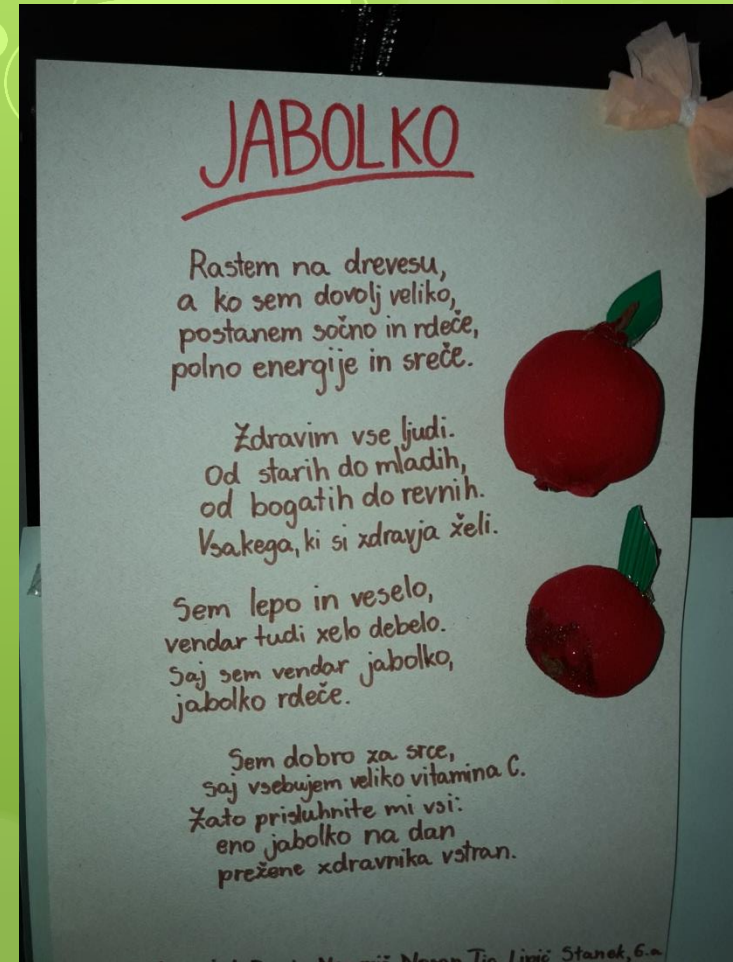 JABOLKO
Rastem na drevesu,
a ko sem dovolj veliko,
postanem sočno in rdeče,
polno energije in sreče.
Zdravim vse ljudi.
Od starih do mladih,
od bogatih do revnih.
Vsakega, ki si zdravja želi.
Sem lepo in veselo,
vendar tudi zelo debelo.
Saj sem vendar jabolko,
jabolko rdeče.
Sem dobro za srce,
saj vsebujem veliko vitamina C.
Zato prisluhnite mi vsi:
eno jabolko na dan
prežene zdravnika vstran.
Tia Linić Stanek, 6.a